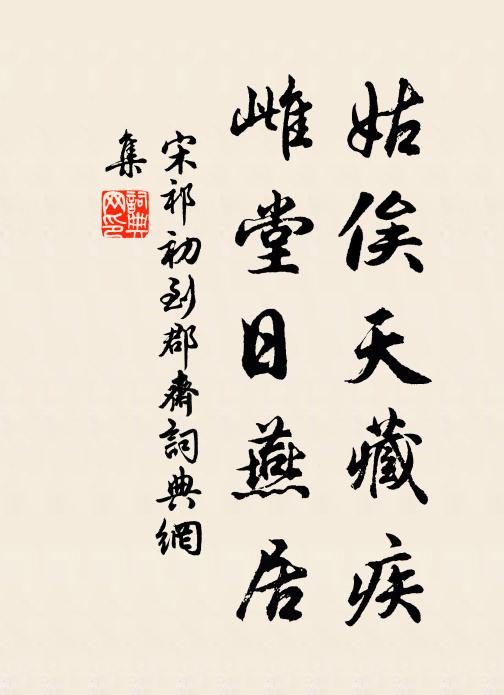 姑俟天藏疾
雌堂日燕居
宋祁初到郡齋詞典網
集
詞典網印